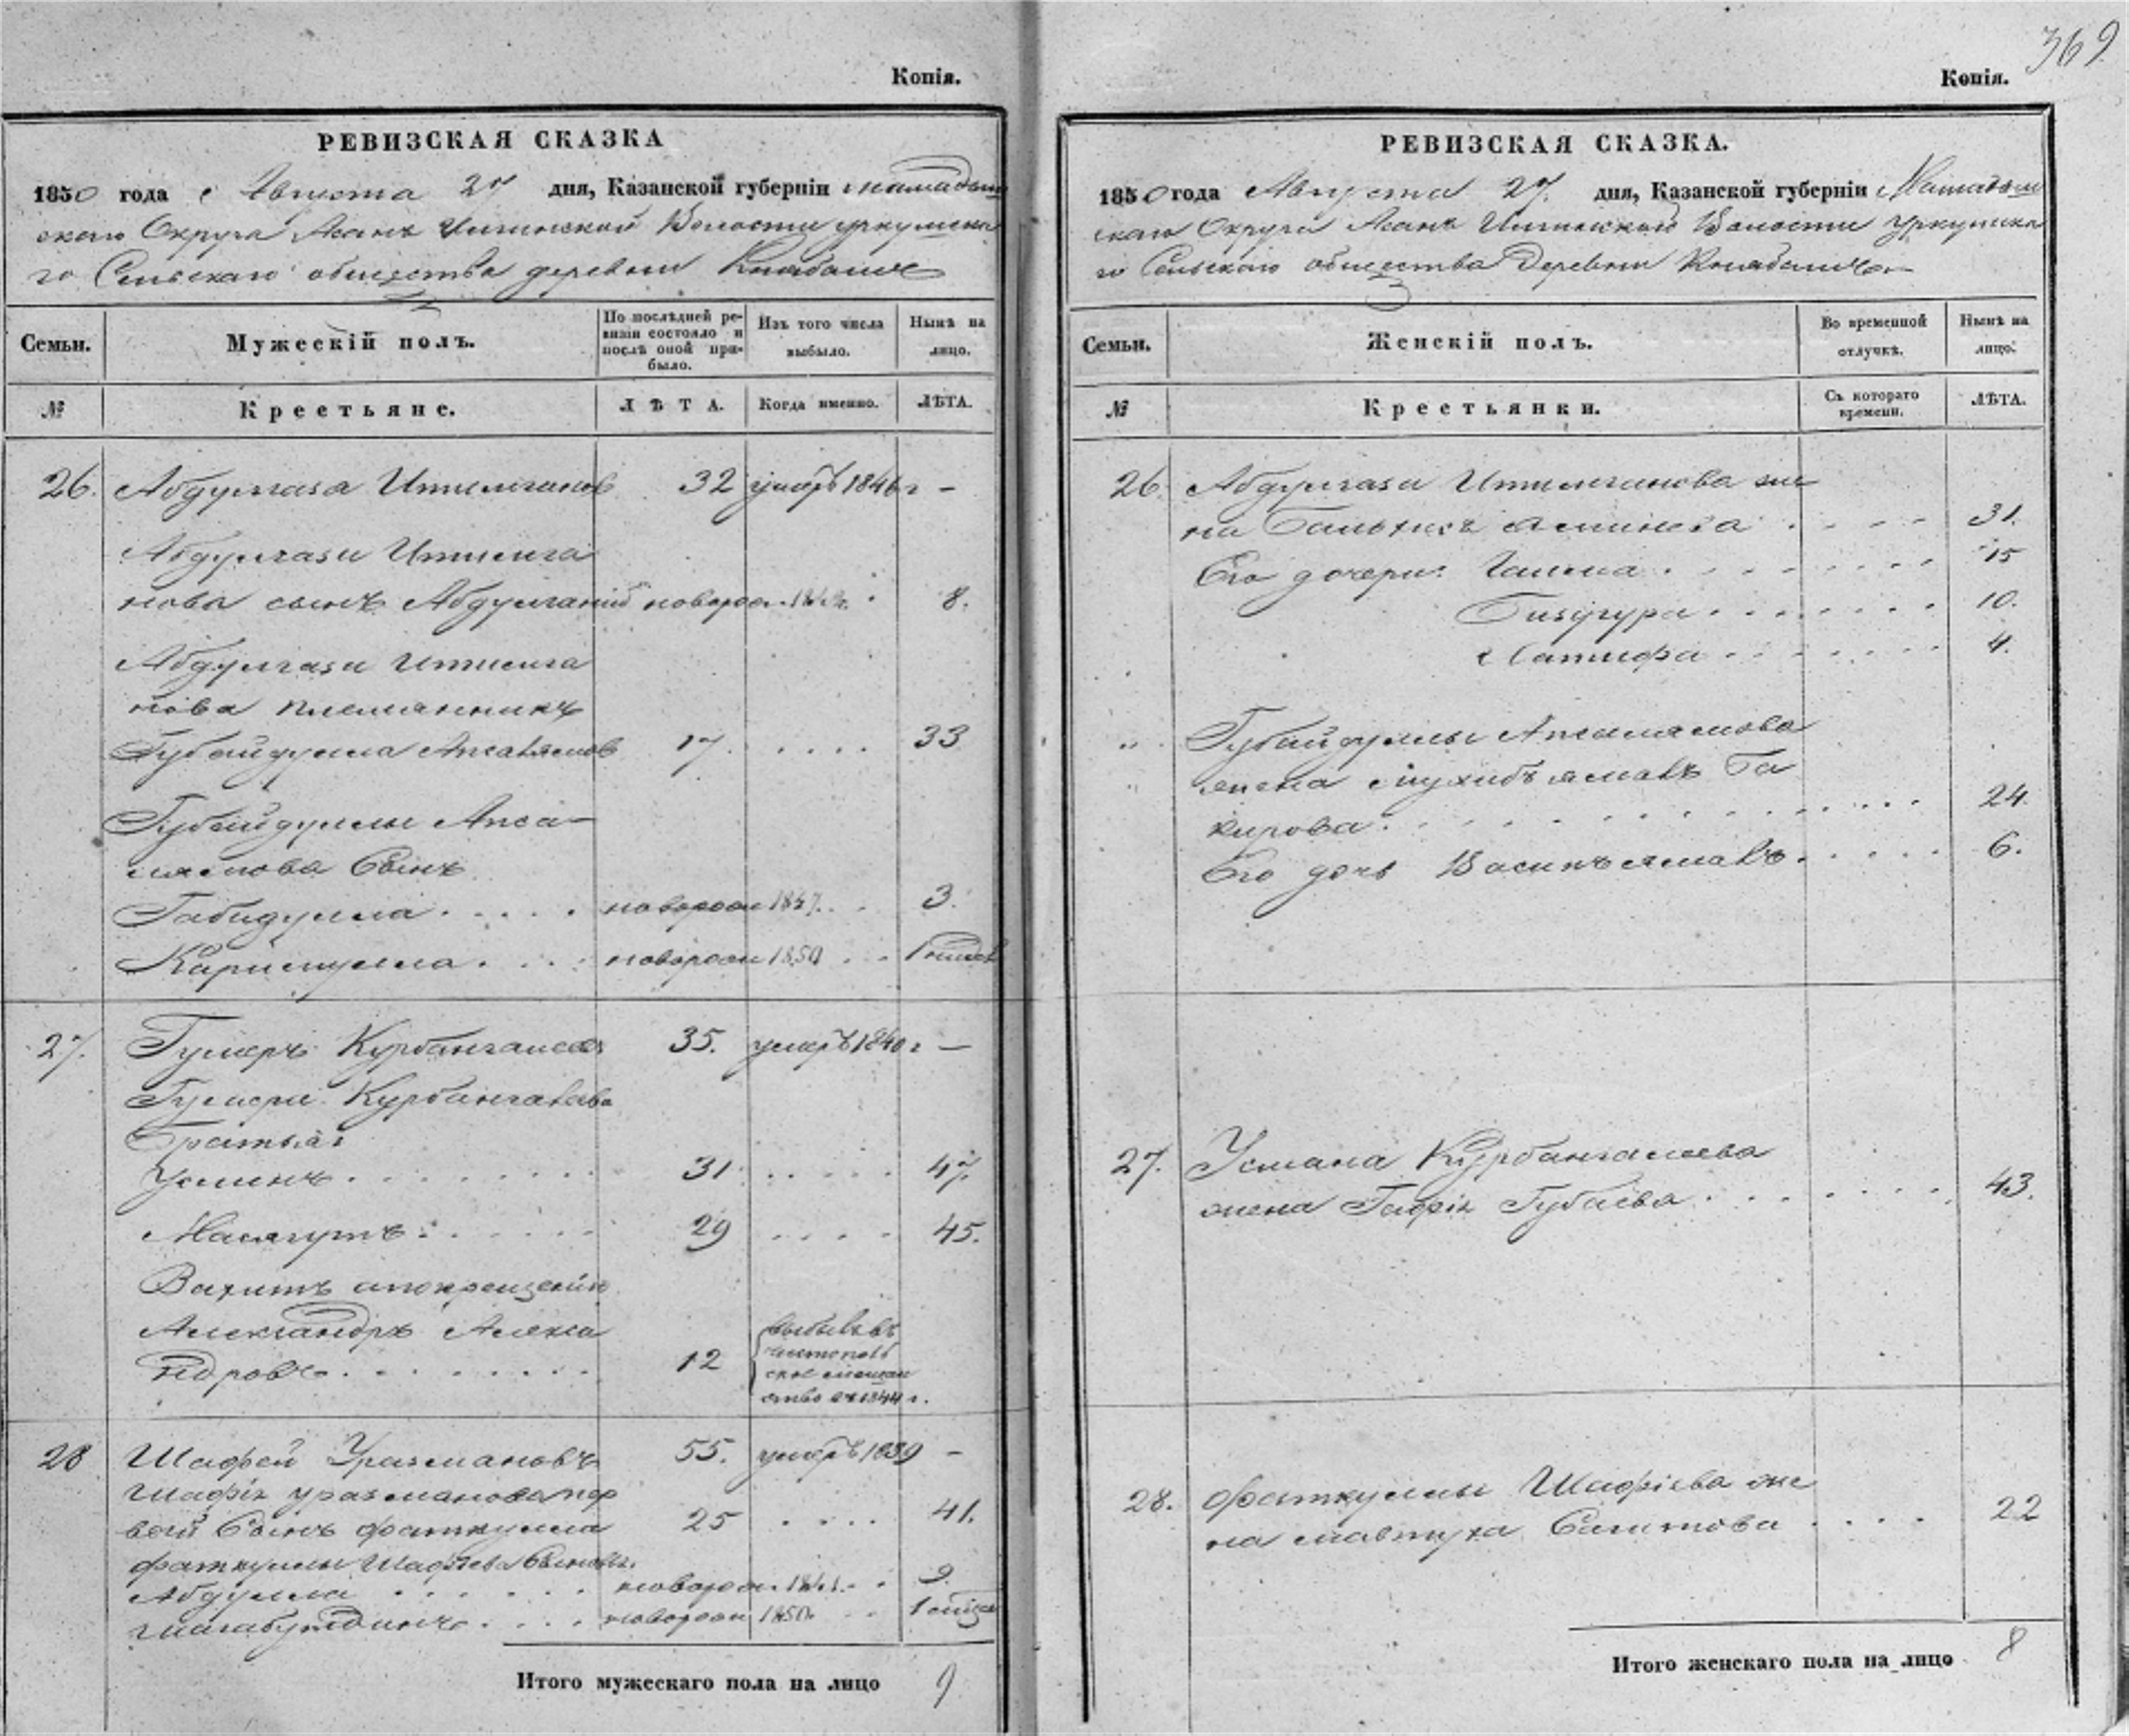 Копія.
РЕВИЗСКАЯ СКАЗКА
1850 года Августа 27 дня, Казанской губерніи Мамадыш
скаго Округа Асанъ Илгинской Волости уркушска
го Сельскаго общества деревни
Семьи.
Мужескій полъ.
По послѣдней ре-
визіи состояло и
послѣ оной при-
было.
Изъ того числа
выбыло.
Нынѣ на
лицо.
№
Крестьяне.
ЛѢТА.
Когда именно.
ЛѢТА.
26. Абдулгази 32 умеръ 1846 г –
Абдулгази
нова сынъ Абдулганій новорож. 8.
Абдулгази
нова племянникъ
Губайдулла Апсалямовъ 17. 33
Губайдуллы Апса-
лямова Сынъ
Габидулла новорож 1847. 3.
Каримулла новорож 1850
27. Гумеръ Курбангалеевъ 35. умеръ 1840 г –
Гумера Курбангалеева
братья:
Усманъ 31 47.
Масягутъ 29 45.
Вахитъ а по крещеніи
Александръ Алекса
ндровъ 12 выбылъ въ
чистополь
ское мещан
ство въ 1844 г.
28 Шафей Уразмановъ 55. умеръ 1839 –
Шафія уразманова пер
вый Сынъ фаткулла 25 41.
фаткуллы Шафіева Сыновья.
Абдулла новорож. 1841. 9.
Шагабутдинъ новорож 1850.
Итого мужескаго пола на лицо 9
369
Копія.
РЕВИЗСКАЯ СКАЗКА.
1850 года Августа 27. дня, Казанской губерніи Мамадыш
скаго Округа Асанъ Илгинской Волости Уркушска
го Сельскаго общества Деревни
Семьи.
Женскій полъ.
Во временной
отлучкѣ.
Нынѣ на
лицо.
№
Крестьянки.
Съ котораго
времени.
ЛѢТА.
26. Абдулгази же
на 31.
Его дочери: Галима 15
Бизифура 10.
Латифа 4.
Губайдуллы Апсалямова
жена Мухибъ ямалъ Ба
кирова 24.
Его дочь Васипъ ямалъ 6.
27. Усмана Курбангалеева
жена Гафія Губаева 43.
28. фаткуллы Шафіева же
на мавтуха Сагитова 22
Итого женскаго пола на лицо 8